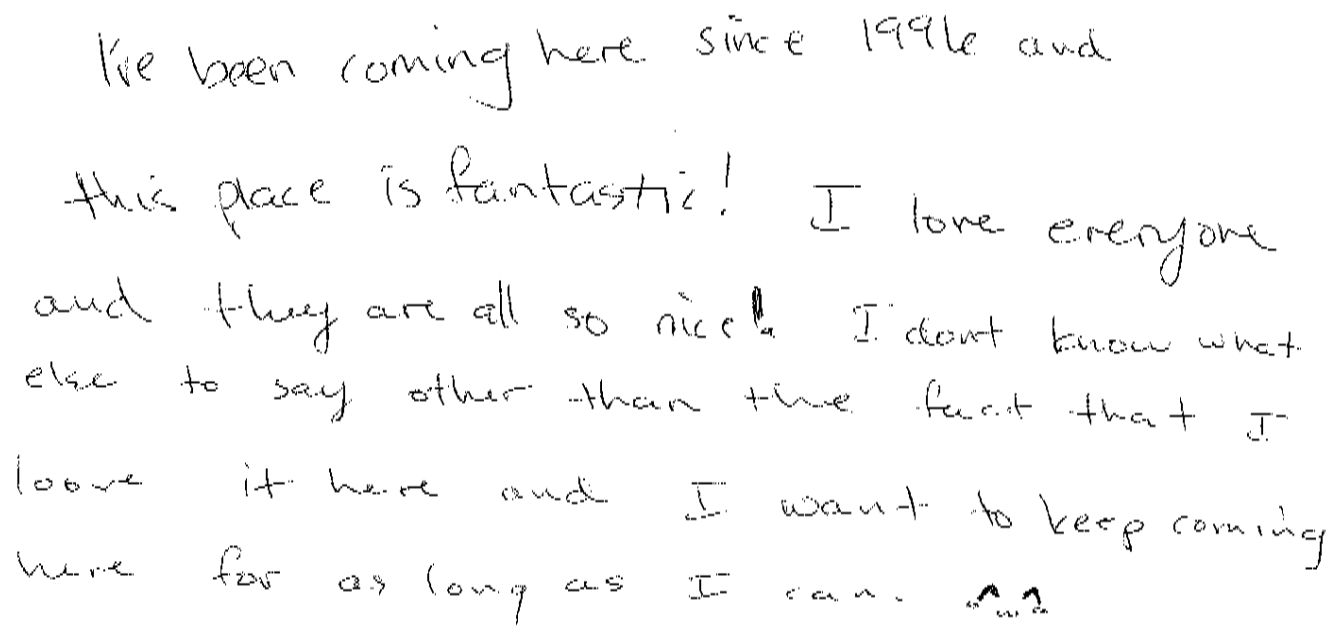 I've been coming here since 1996 and
this place is fantastic! I love everyone
and they are all so nice! I dont know what
else to say other than the fact that I
loove it here and I want to keep coming
here for as long as I can. ^_^